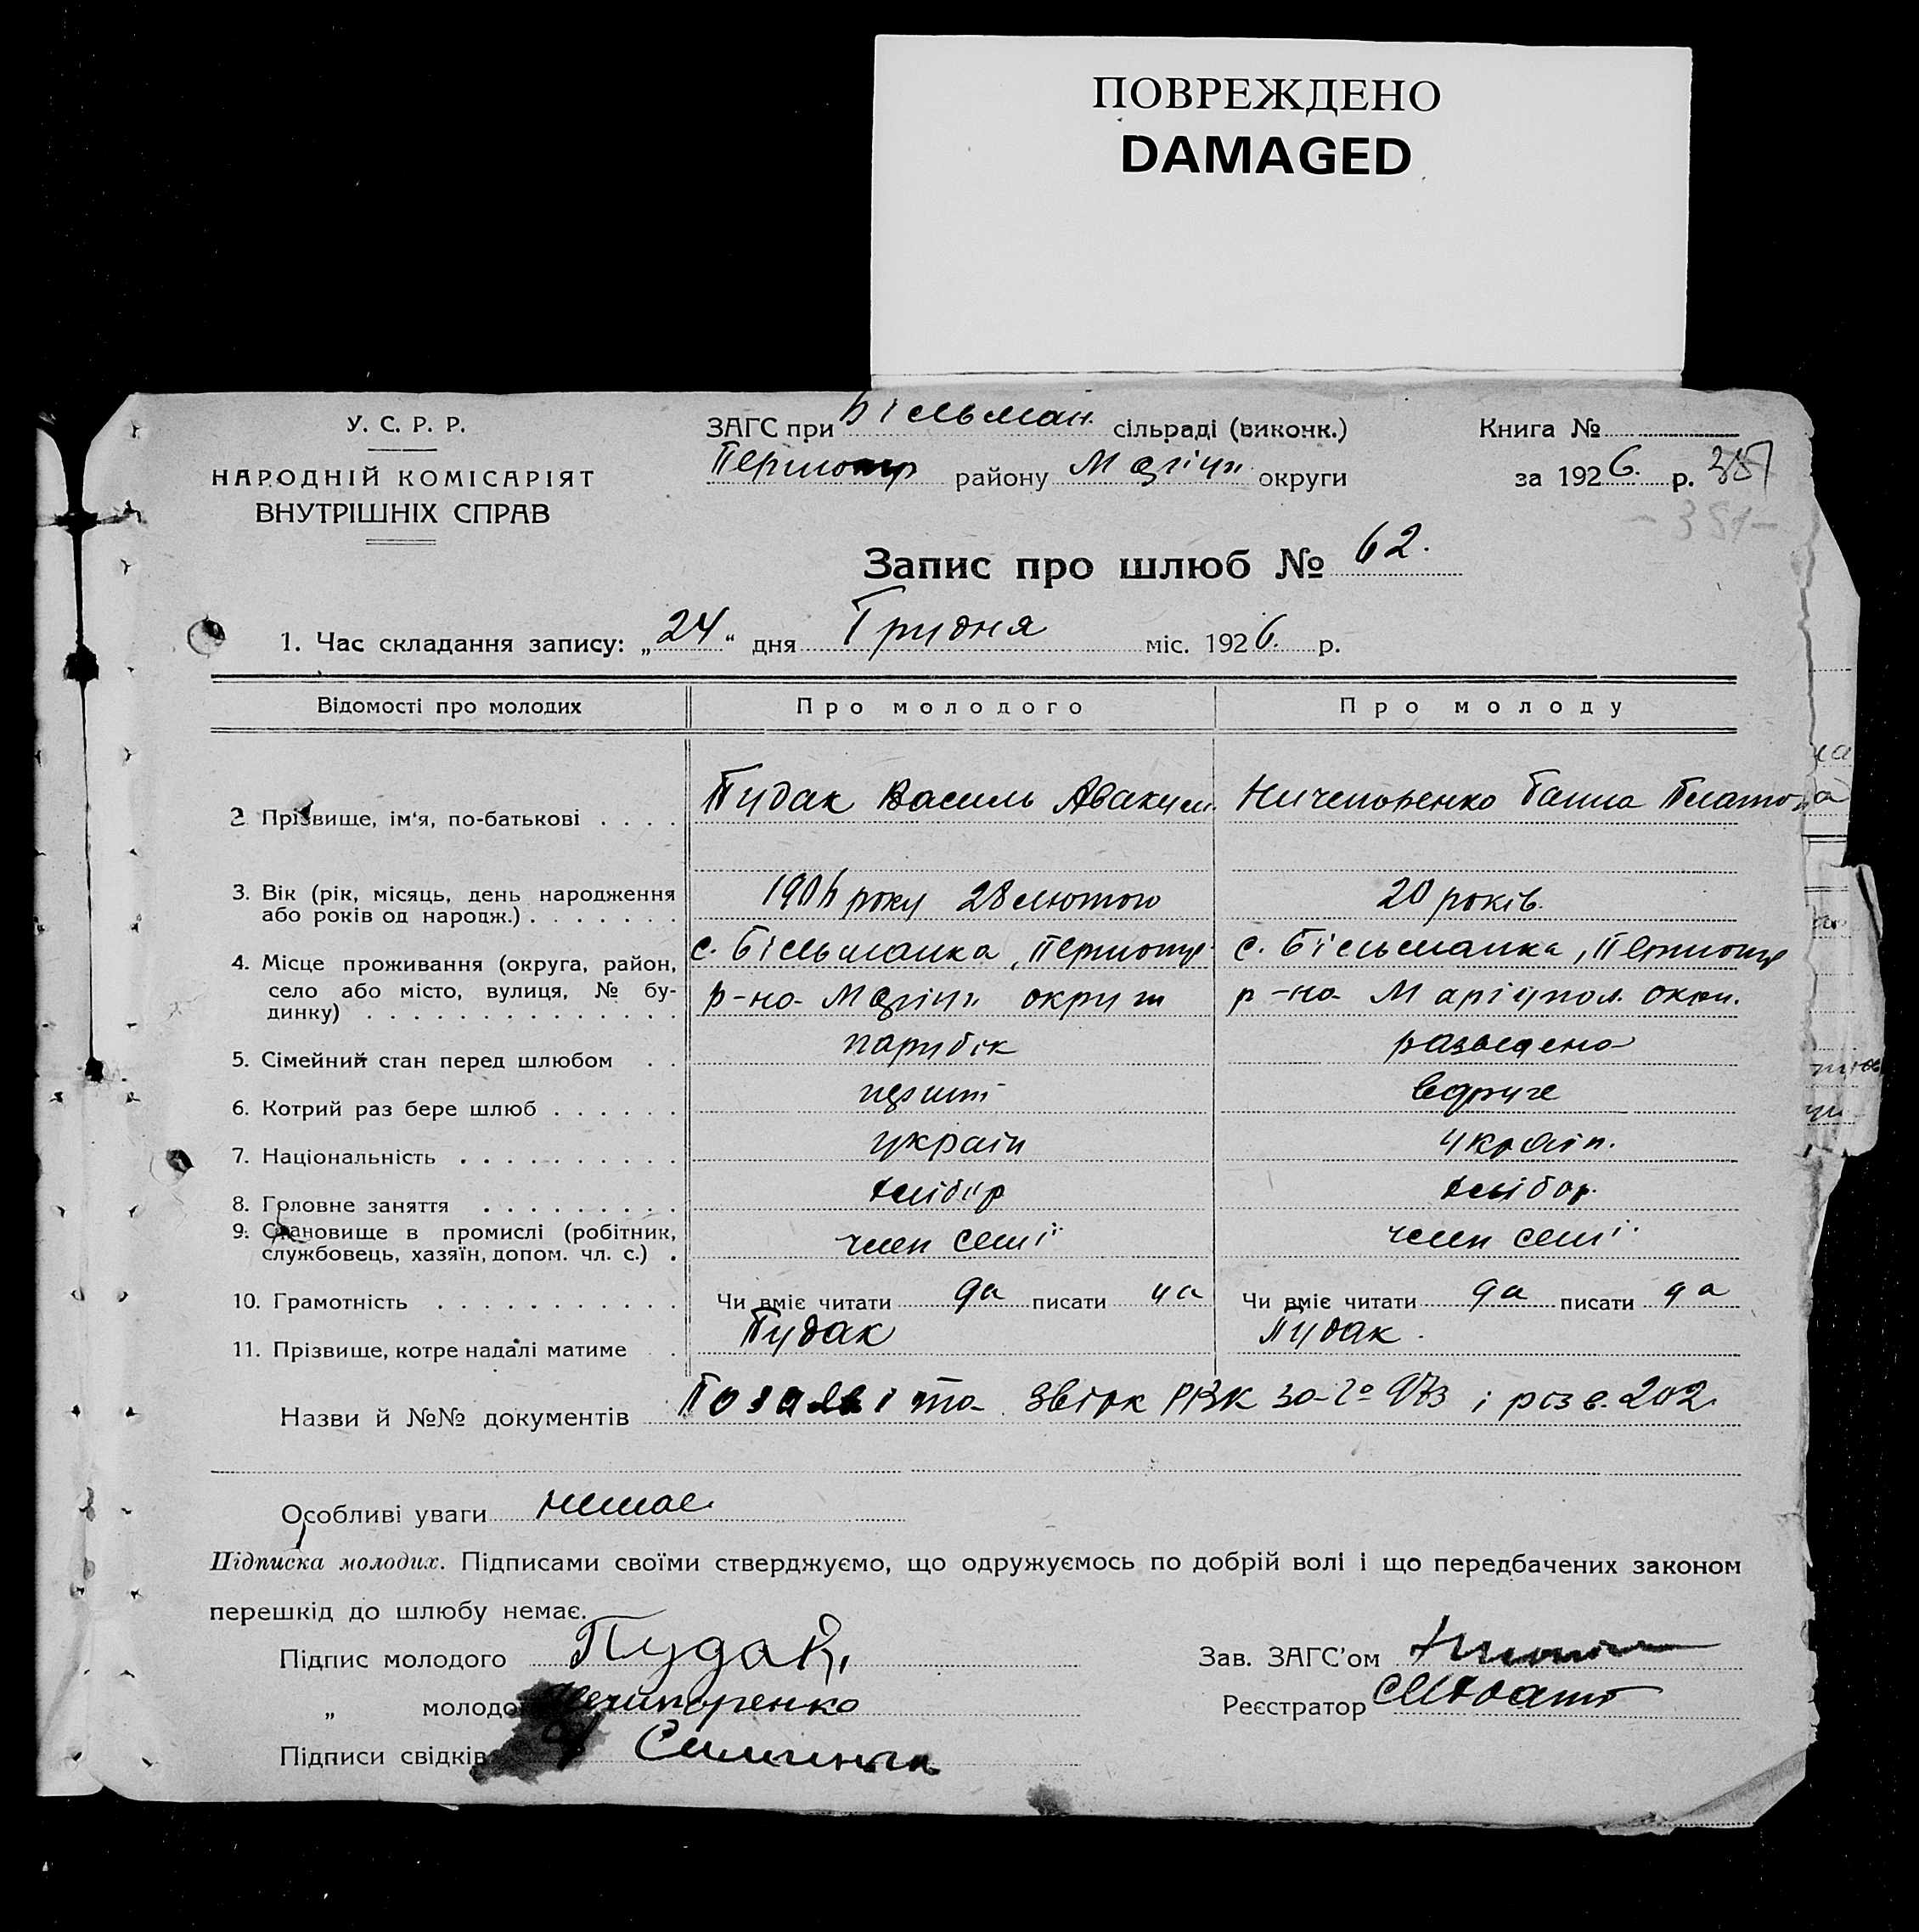 ПОВРЕЖДЕНО
DAMAGED
У. С. Р. Р.
НАРОДНІЙ КОМІСАРІЯТ
ВНУТРІШНІХ СПРАВ
ЗАГС при Більман. сільраді (виконк.)
району Маріуп. округи
Книга №
за 1926. р.
- 351 -
Запис про шлюб № 62.
1. Час складання запису: „24“ дня Грудня міс. 1926. р.
Відомості про молодих Про молодого Про молоду
2. Прізвище, ім'я, по-батькові . . . . Пудак Василь Авакум. Ничепоренко Ганна Платон
3. Вік (рік, місяць, день народження
або років од народж.) . . . . . . . року 28 лютого 20 років.
4. Місце проживання (округа, район, с. Більманка, с. Більманка,
село або місто, вулиця, № бу-
динку) . . . . . . . . . . . . . . р-на Маріуп округи р-на Маріупол. окри.
5. Сімейний стан перед шлюбом . . парубік разведена
6. Котрий раз бере шлюб . . . . . . вдруге
7. Національність . . . . . . . . . . україн україн.
8. Головне заняття . . . . . . . . . хлібор хлібор.
9. Становище в промислі (робітник,
службовець, хазяїн, допом. чл. с.) . член семї член семї
10. Грамотність . . . . . . . . . . . Чи вміє читати да писати да Чи вміє читати да писати да
11. Прізвище, котре надалі матиме . Пудак Пудак.
Назви й №№ документів та РВК 202.
Особливі уваги немає.
Підписка молодих. Підписами своїми стверджуємо, що одружуємось по добрій волі і що передбачених законом
перешкід до шлюбу немає.
Підпис молодого Пудак
„ молодо Нечипоренко
Підписи свідків
Зав. ЗАГС'ом
Реєстратор